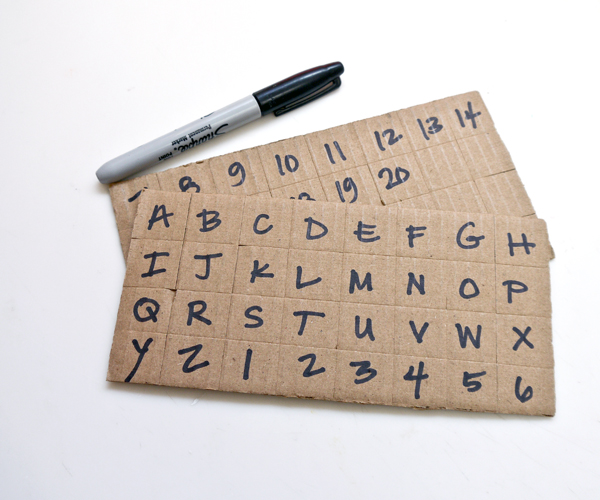 Sharpie
Permanent Marker
8 9 10 11 12 13 14
19 20
A B C D E F G H
I J K L M N O P
Q R S T U V W X
Y Z 1 2 3 4 5 6